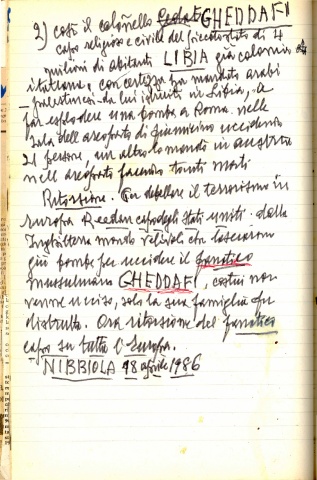 2) così il colonnello Gedat GHEDDAFI
capo religioso e civile del piccolo stato di 4
milioni di abitanti LIBIA già colonia
italiana, con certezza ha mandato arabi
palestinesi da lui istruiti in Libia, a
far esplodere una bomba a Roma nella
sala dell aeroporto di Fiumicino uccidendo
21 persone, un altro lo mandò in Austria
nell aeroporto facendo tanti morti
Ritorsione. Per debellare il terrorismo in
Europa Reedan capo degli Stati uniti dalla
Inghilterra mandò velivoli che lasciarono
giù bombe per uccidere il fanatico
mussulmano GHEDDAFI, costui non
venne ucciso, solo la sua famiglia fu
distrutta. Ora ritorsione del fanatico
capo su tutta l'Europa.
NIBBIOLA 18 aprile 1986